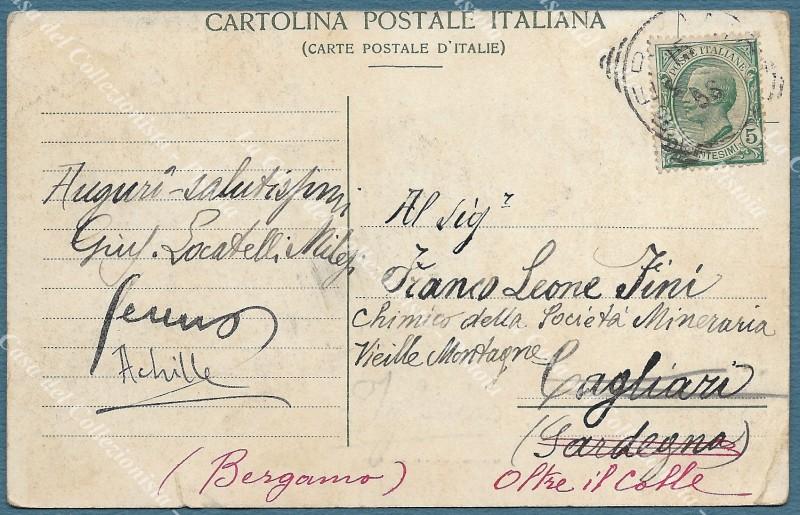 CARTOLINA POSTALE ITALIANA
(CARTE POSTALE D'ITALIE)
POSTE ITALIANE
5
CENTESIMI
Auguri-salutissimi
Gius. Locatelli Milesi
Achille
Al sigr
Franco Leone Fini
Chimico della Società Mineraria
Vieille Montagne
Cagliari
(Sardegna)
(Bergamo)
Oltre il Colle